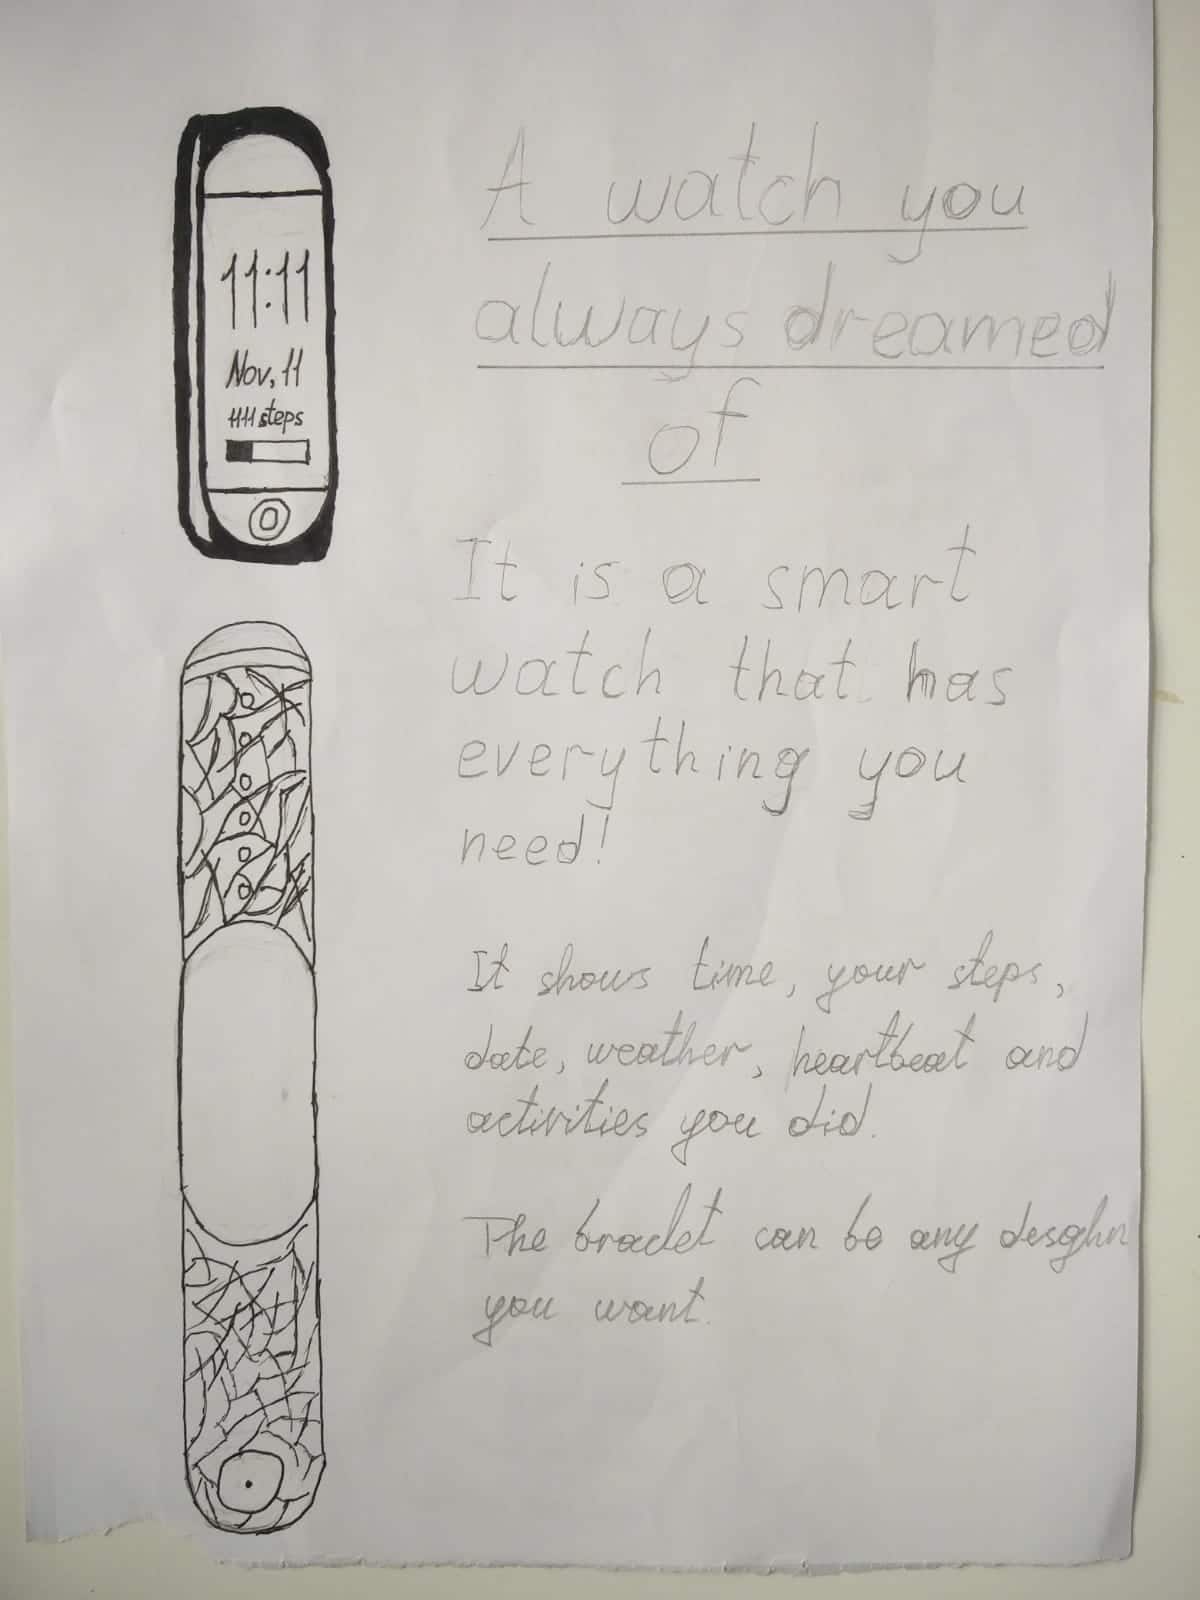 11:11
Nov, 11
1111 steps
A watch you
always dreamed
of
It is a smart
watch that has
everything you
need!
It shows time, your steps,
date, weather, heartbeat and
activities you did.
The braclet can be any desghn
you want.